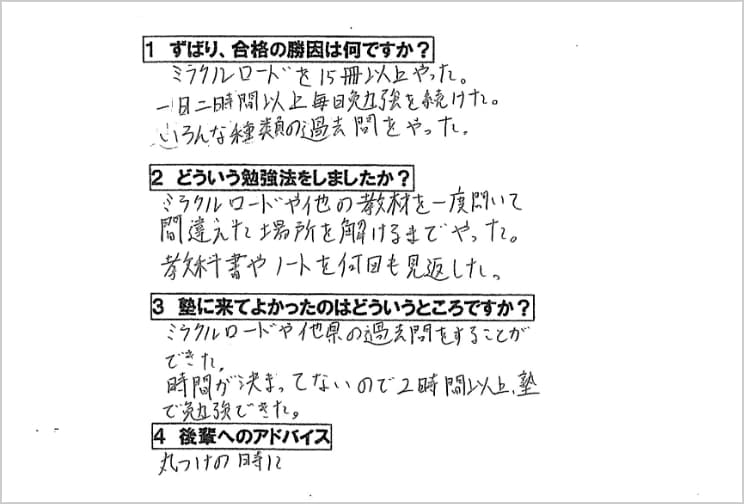 1 ずばり、合格の勝因は何ですか？
ミラクルロードを15冊以上やった。
一日二時間以上毎日勉強を続けた。
いろんな種類の過去問をやった。
2 どういう勉強法をしましたか？
ミラクルロードや他の教材を一度解いて
間違えた場所を解けるまでやった。
教科書やノートを何回も見返した。
3 塾に来てよかったのはどういうところですか？
ミラクルロードや他県の過去問をすることが
できた。
時間が決まってないので2時間以上、塾
で勉強できた。
4 後輩へのアドバイス
丸つけの時に